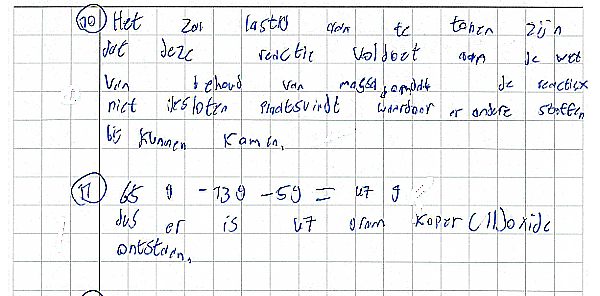 10 Het zou lastig aan te tonen zijn
dat deze reactie voldoet aan de wet
van behoud van massa, omdat de reactie
niet gesloten plaatsvindt waardoor er andere stoffen
bij kunnen komen.
11 65 g - 13 g - 5 g = 47 g
dus er is 47 gram koper(II)oxide
ontstaan.